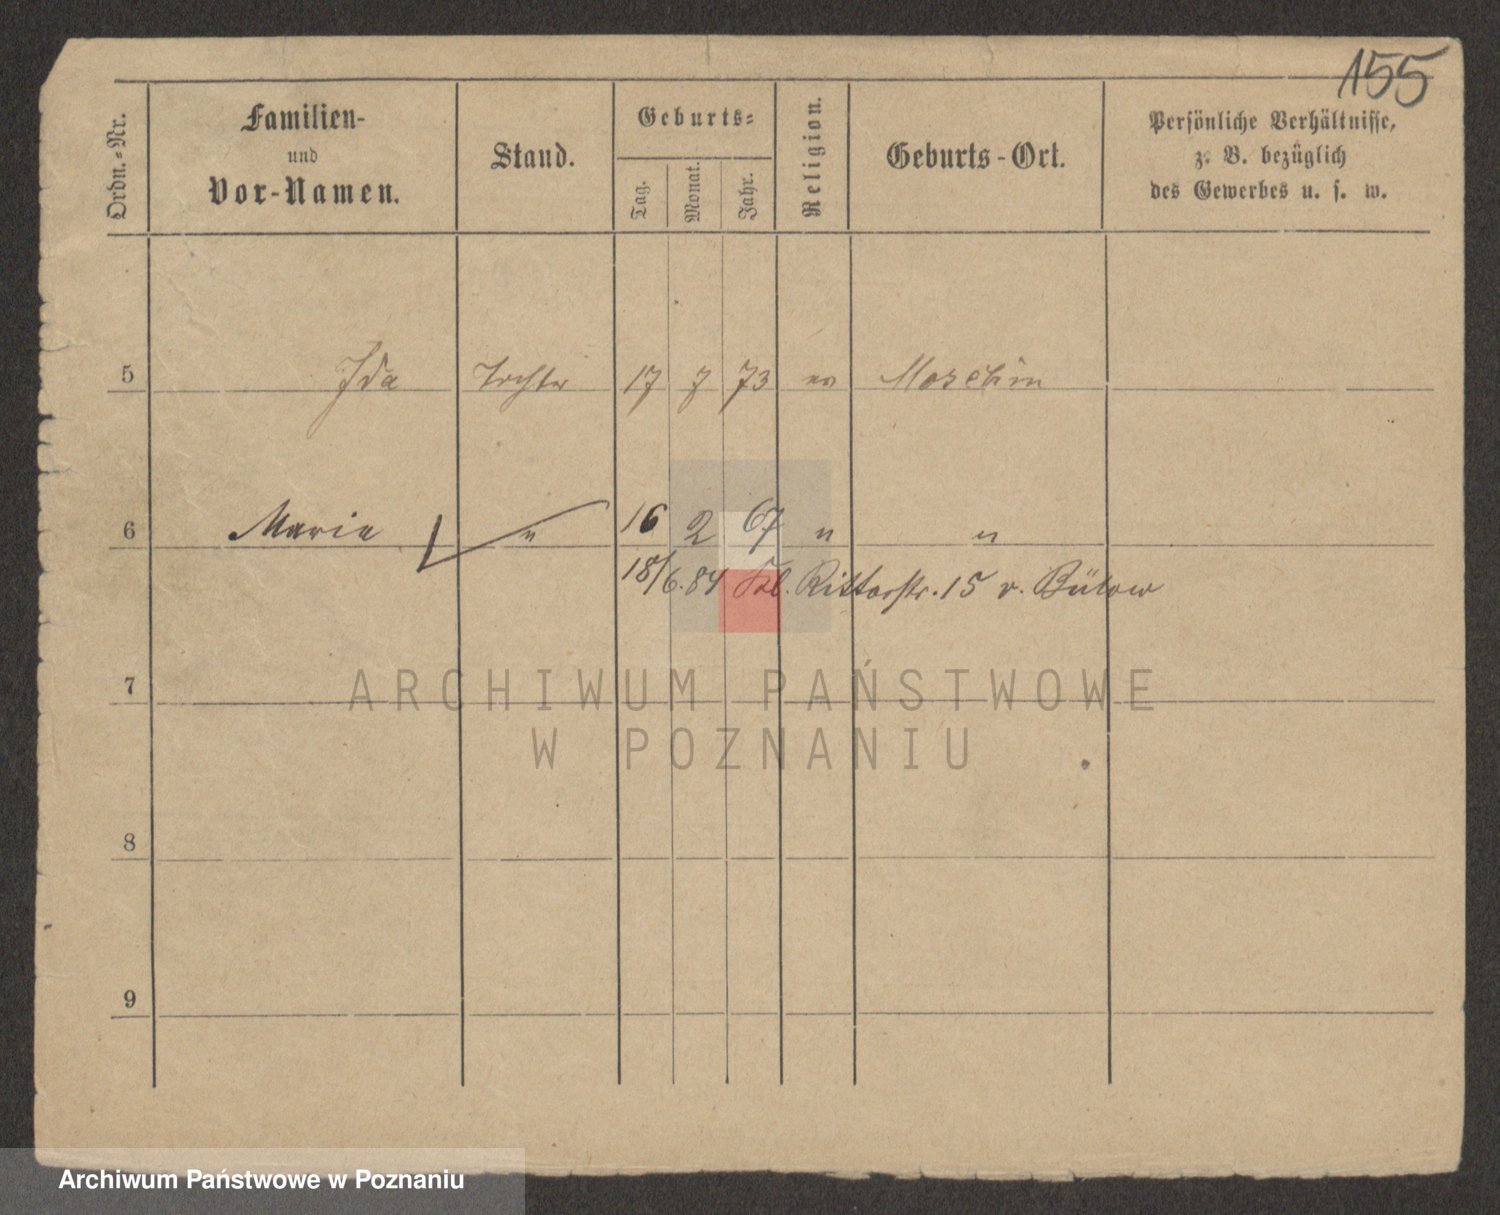 155
Ordn.-Nr.
Familien-
und
Vor-Namen.
Stand.
Geburts-
Tag.
Monat.
Jahr.
Religion.
Geburts-Ort.
Persönliche Verhältnisse,
z. B. bezüglich
des Gewerbes u. s. w.
5 Ida Tochter 17 7 73 ev Moschin
6 Maria " 16 2 67 " "
18/6. 84 Kl. Ritterstr. 15 v. Bülow
7
ARCHIWUM PAŃSTWOWE
W POZNANIU
8
9
Archiwum Państwowe w Poznaniu